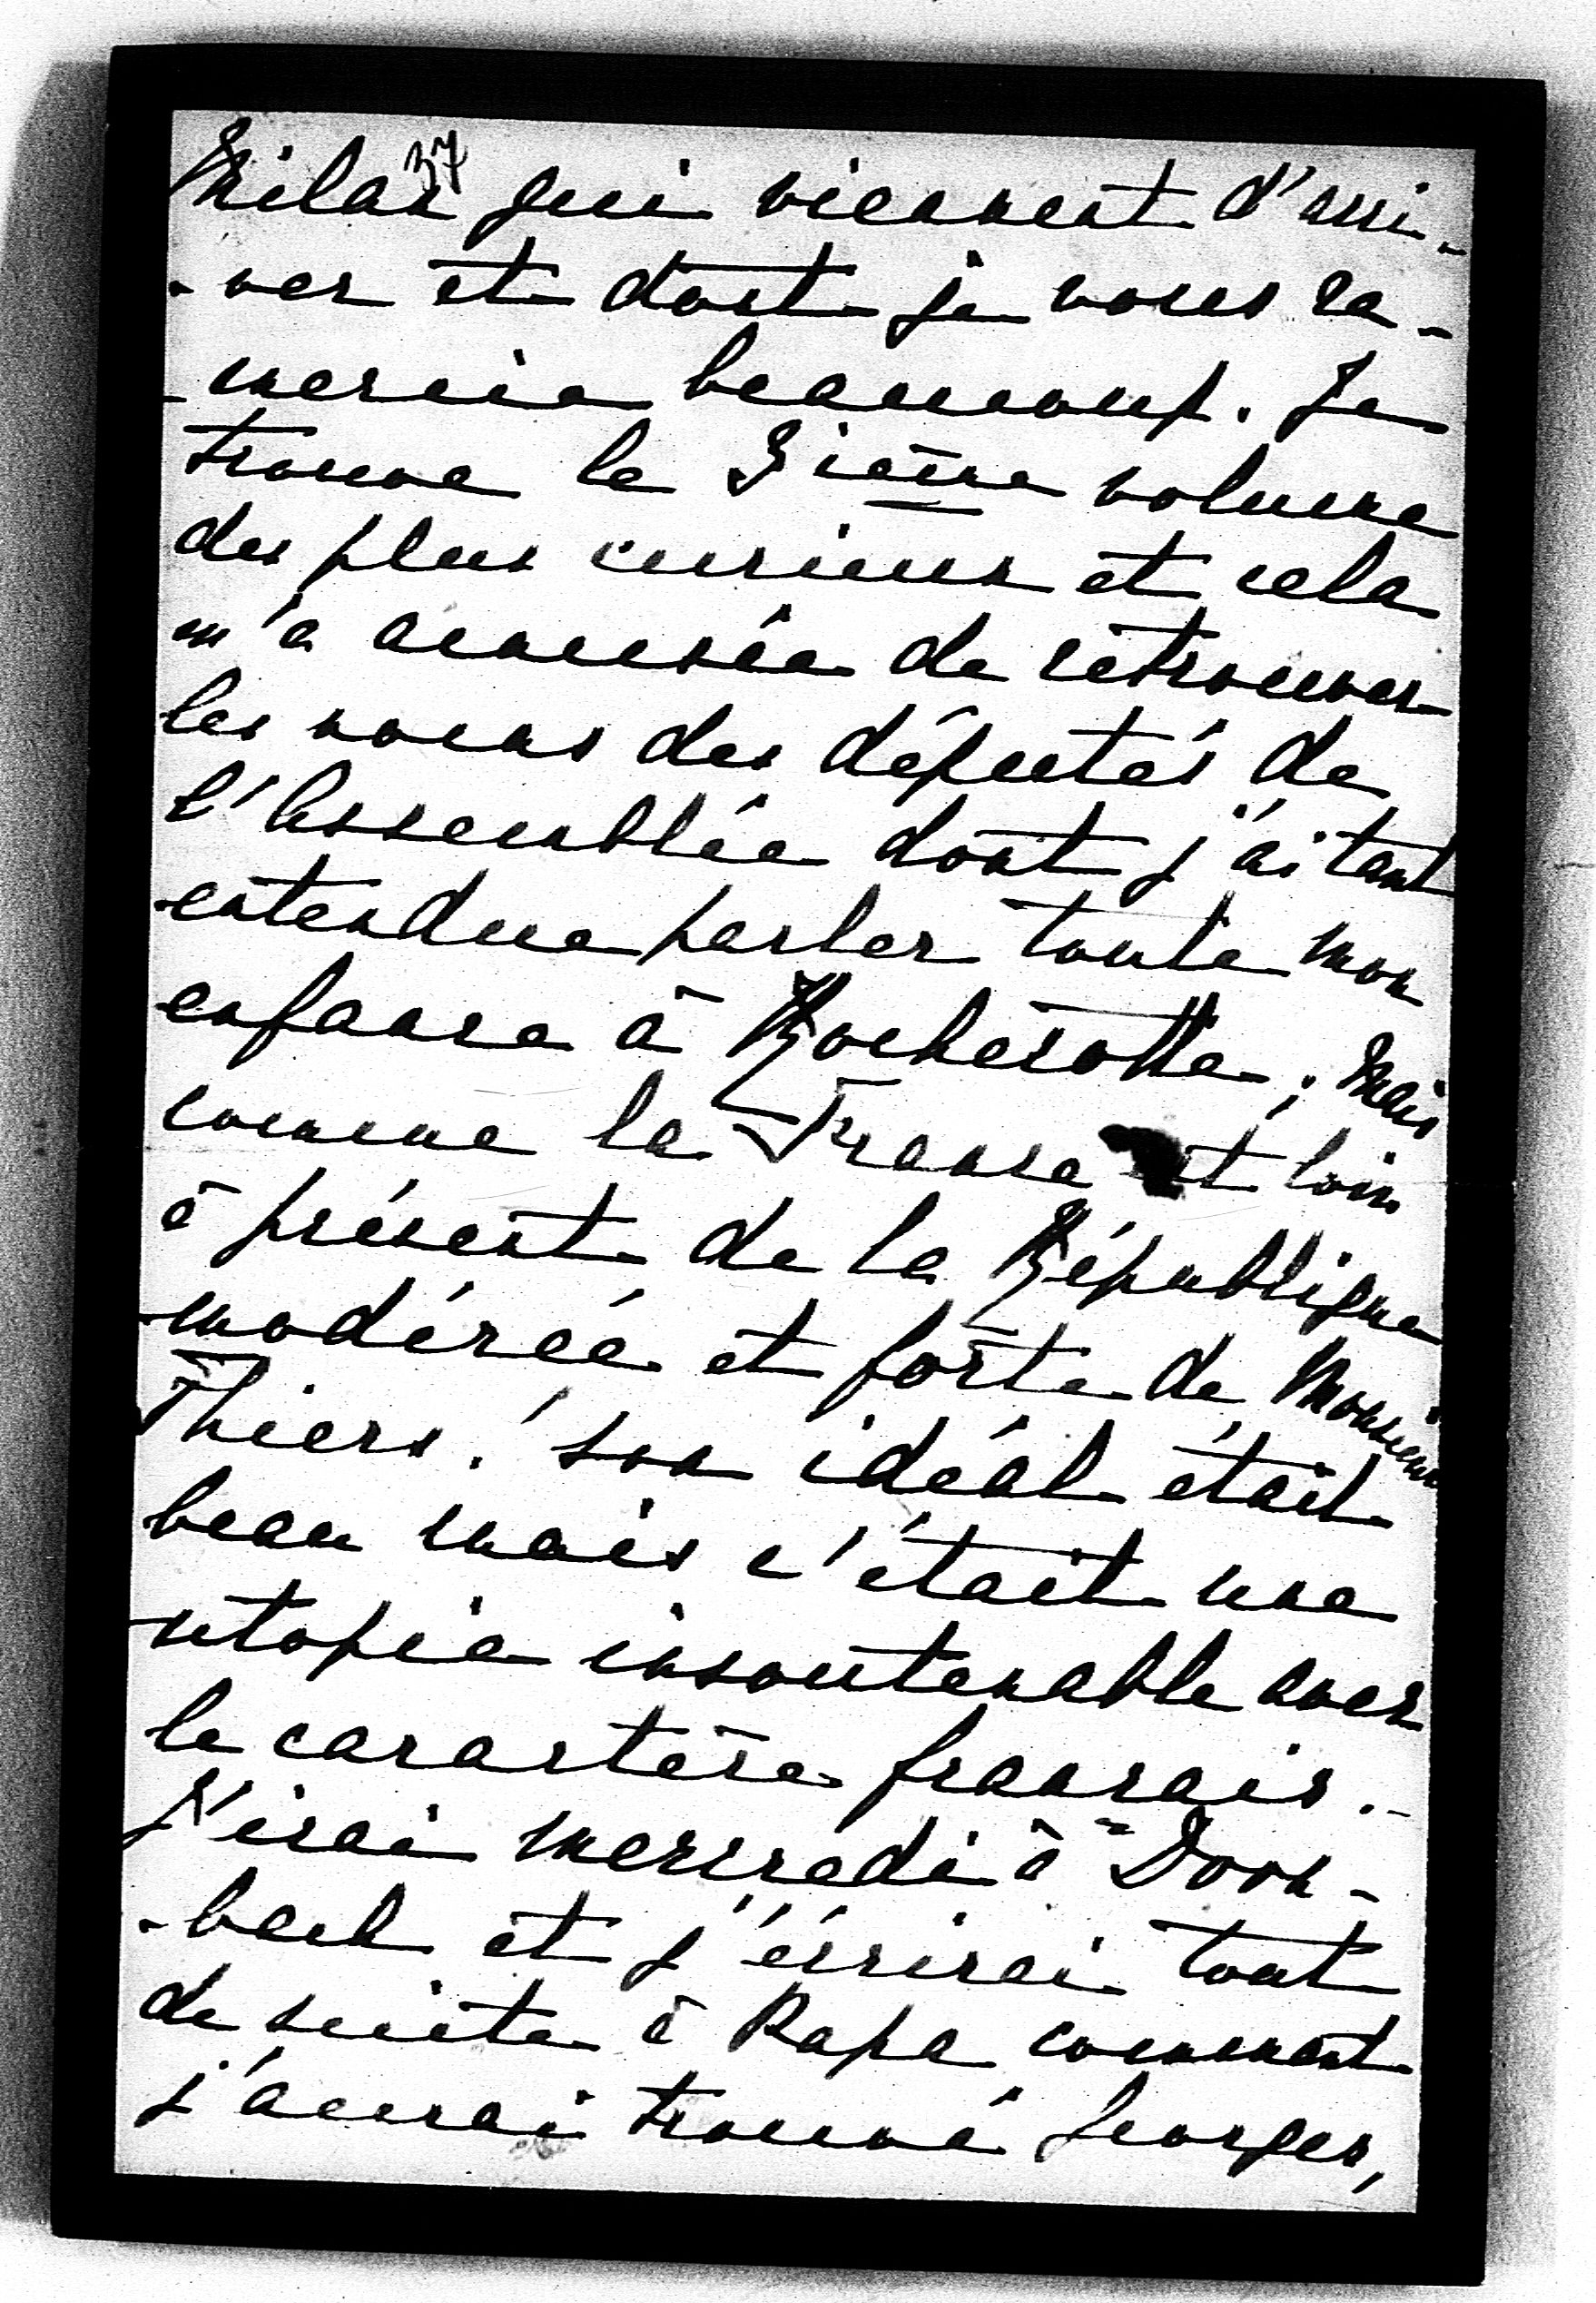 37
Milan qui viennent d'arri-
-ver et dont je vous re-
-mercie beaucoup. Je
trouve le 3ième volume
des plus curieux et cela
m'a amusée de retrouver
les noms des députés de
l'Assemblée dont j'ai tant
entendue parler toute mon
enfance à Rochecotte; Mais
comme la France est loin
à présent de la République
modérée et forte de Monsieur
Thiers! son idéal était
beau mais c'était une
utopie insoutenable avec
le caractère français.-
J'irai mercredi à Dorn-
-bach et j'écrirai tout
de suite à Papa comment
j'aurai trouvé Georges,